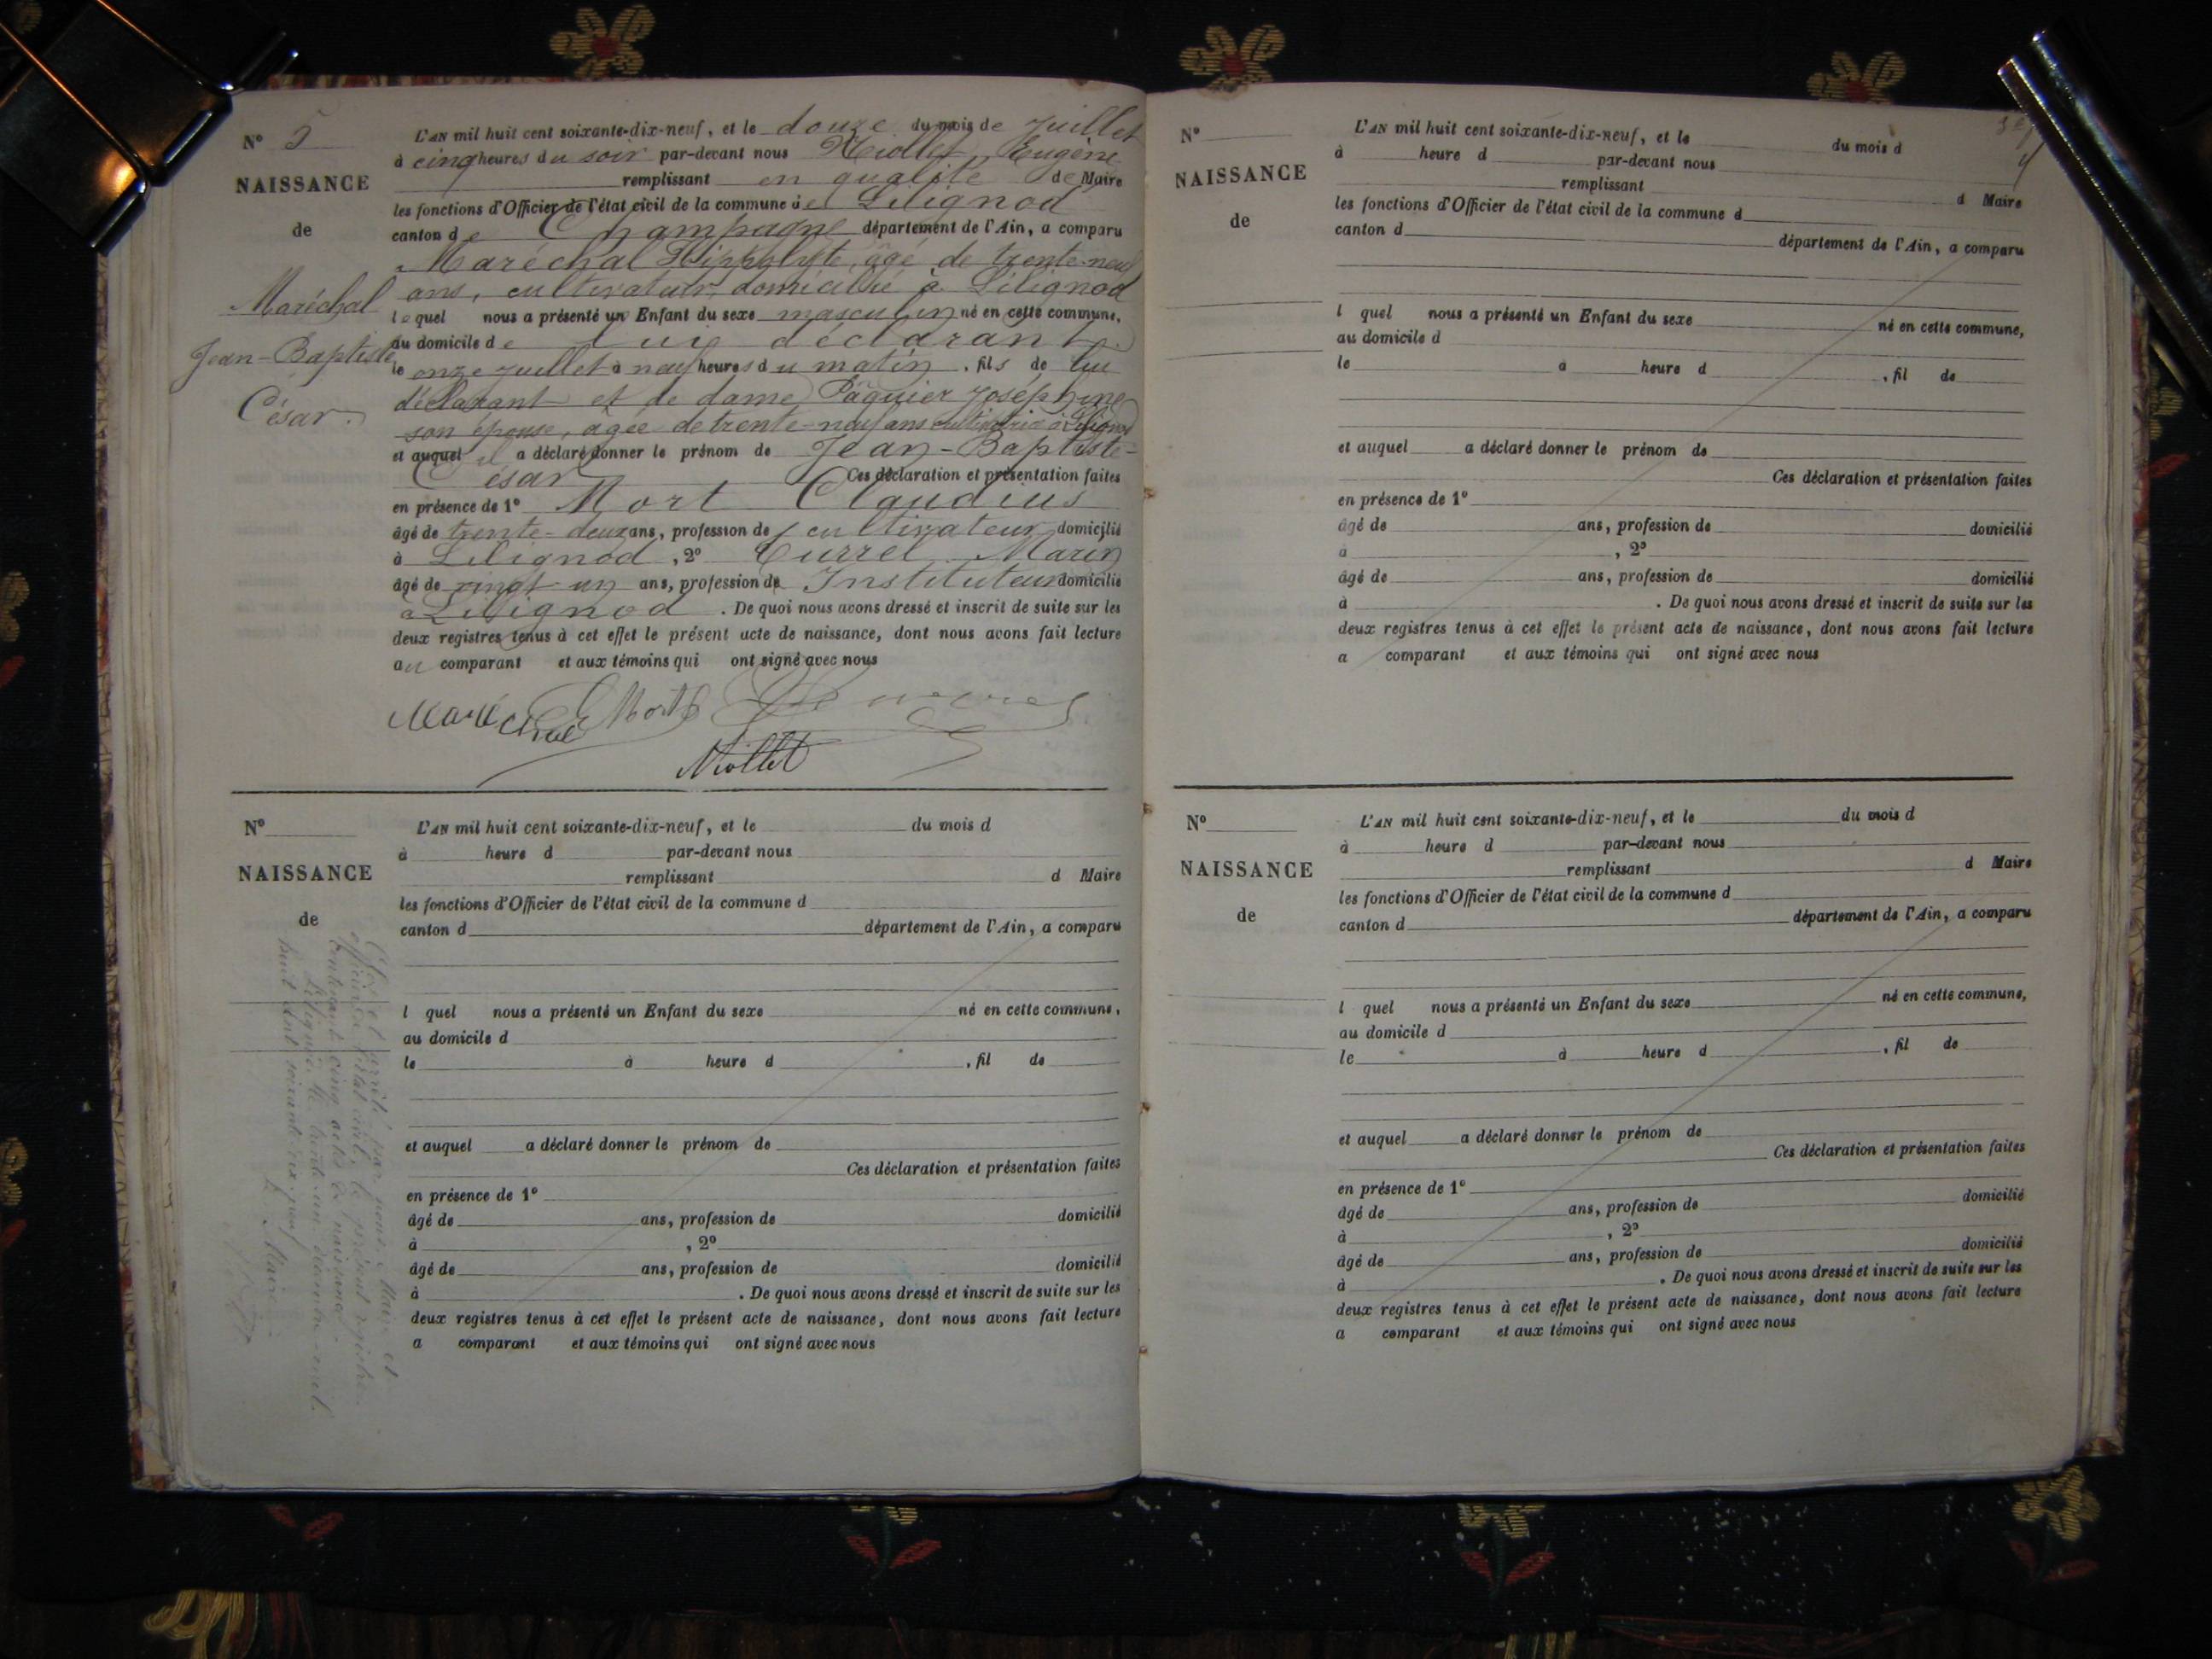 N° 5
NAISSANCE
de
Maréchal
Jean-Baptiste
César.
L'AN mil huit cent soixante-dix-neuf, et le douze du mois de Juillet
à cinq heures du soir par-devant nous Miollet Eugène
remplissant en qualité de Maire
les fonctions d'Officier de l'état civil de la commune de Lilignod
canton de Champagne département de l'Ain, a comparu
Maréchal Hippolyte, âgé de trente-neuf
ans, cultivateur, domicilié à Lilignod
lequel nous a présenté un Enfant du sexe masculin né en cette commune,
au domicile de lui déclarant
le onze juillet à neuf heures du matin, fils de lui
déclarant et de dame Paquier Joséphine
son épouse, âgée de trente-neuf ans cultivatrice à Lilignod
et auquel il a déclaré donner le prénom de Jean-Baptiste-
César Ces déclaration et présentation faites
en présence de 1° Mort Claudius
âgé de trente-deux ans, profession de cultivateur domicilié
à Lilignod, 2° Currel Marin
âgé de vingt-un ans, profession de Instituteur domicilié
à Lilignod. De quoi nous avons dressé et inscrit de suite sur les
deux registres tenus à cet effet le présent acte de naissance, dont nous avons fait lecture
au comparant et aux témoins qui ont signé avec nous
Maréchal Mort
Miollet
N°
NAISSANCE
de
L'AN mil huit cent soixante-dix-neuf, et le du mois d
à heure d par-devant nous
remplissant d Maire
les fonctions d'Officier de l'état civil de la commune d
canton d département de l'Ain, a comparu
l quel nous a présenté un Enfant du sexe né en cette commune,
au domicile d
le à heure d , fil de
et auquel a déclaré donner le prénom de
Ces déclaration et présentation faites
en présence de 1°
âgé de ans, profession de domicilié
à , 2°
âgé de ans, profession de domicilié
à . De quoi nous avons dressé et inscrit de suite sur les
deux registres tenus à cet effet le présent acte de naissance, dont nous avons fait lecture
a comparant et aux témoins qui ont signé avec nous
Clos et arrêté par nous Maire et
officier de l'état civil, le présent registre
contenant cinq actes de naissance.
Lilignod le trente-un décembre mil
huit cent soixante dix-neuf
Le Maire
N°
NAISSANCE
de
L'AN mil huit cent soixante-dix-neuf, et le du mois d
à heure d par-devant nous
remplissant d Maire
les fonctions d'Officier de l'état civil de la commune d
canton d département de l'Ain, a comparu
l quel nous a présenté un Enfant du sexe né en cette commune,
au domicile d
le à heure d , fil de
et auquel a déclaré donner le prénom de
Ces déclaration et présentation faites
en présence de 1°
âgé de ans, profession de domicilié
à , 2°
âgé de ans, profession de domicilié
à . De quoi nous avons dressé et inscrit de suite sur les
deux registres tenus à cet effet le présent acte de naissance, dont nous avons fait lecture
a comparant et aux témoins qui ont signé avec nous
N°
NAISSANCE
de
L'AN mil huit cent soixante-dix-neuf, et le du mois d
à heure d par-devant nous
remplissant d Maire
les fonctions d'Officier de l'état civil de la commune d
canton d département de l'Ain, a comparu
l quel nous a présenté un Enfant du sexe né en cette commune,
au domicile d
le à heure d , fil de
et auquel a déclaré donner le prénom de
Ces déclaration et présentation faites
en présence de 1°
âgé de ans, profession de domicilié
à , 2°
âgé de ans, profession de domicilié
à . De quoi nous avons dressé et inscrit de suite sur les
deux registres tenus à cet effet le présent acte de naissance, dont nous avons fait lecture
a comparant et aux témoins qui ont signé avec nous